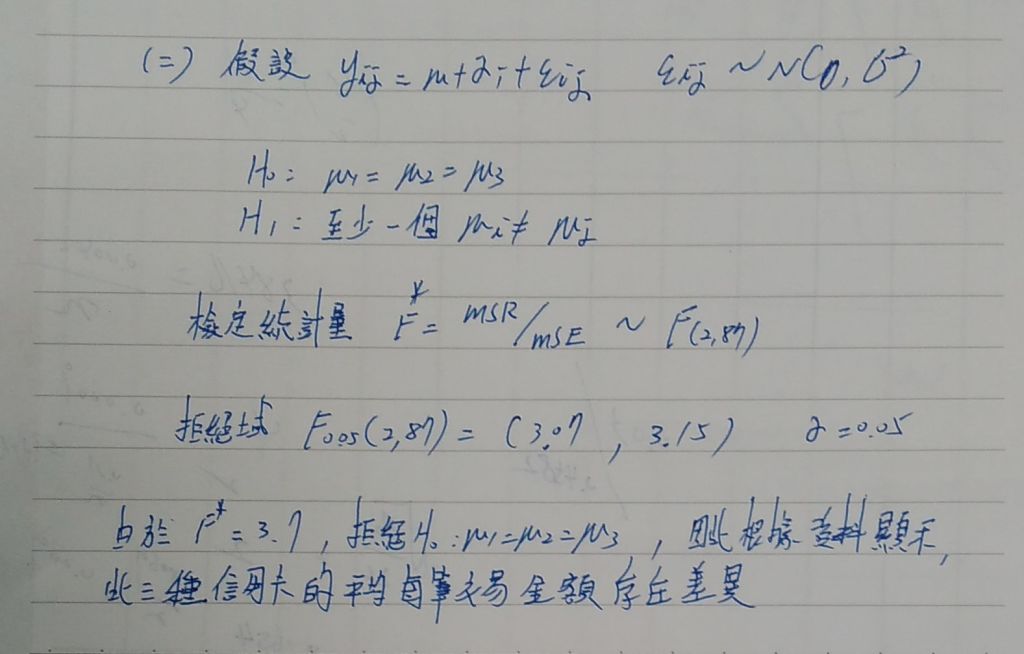 (二) 假設 yij = μ + αi + εij  εij ~ N(0, σ²)
H₀: μ1 = μ2 = μ3
H₁: 至少一個 μi ≠ μj
檢定統計量 F* = MSR/MSE ~ F(2,87)
拒絕域 F0.05(2,87) = (3.07, 3.15)  α = 0.05
由於 F* = 3.7, 拒絕 H₀: μ1=μ2=μ3, 因此根據資料顯示,
此三種信用卡的平均每筆交易金額存在差異